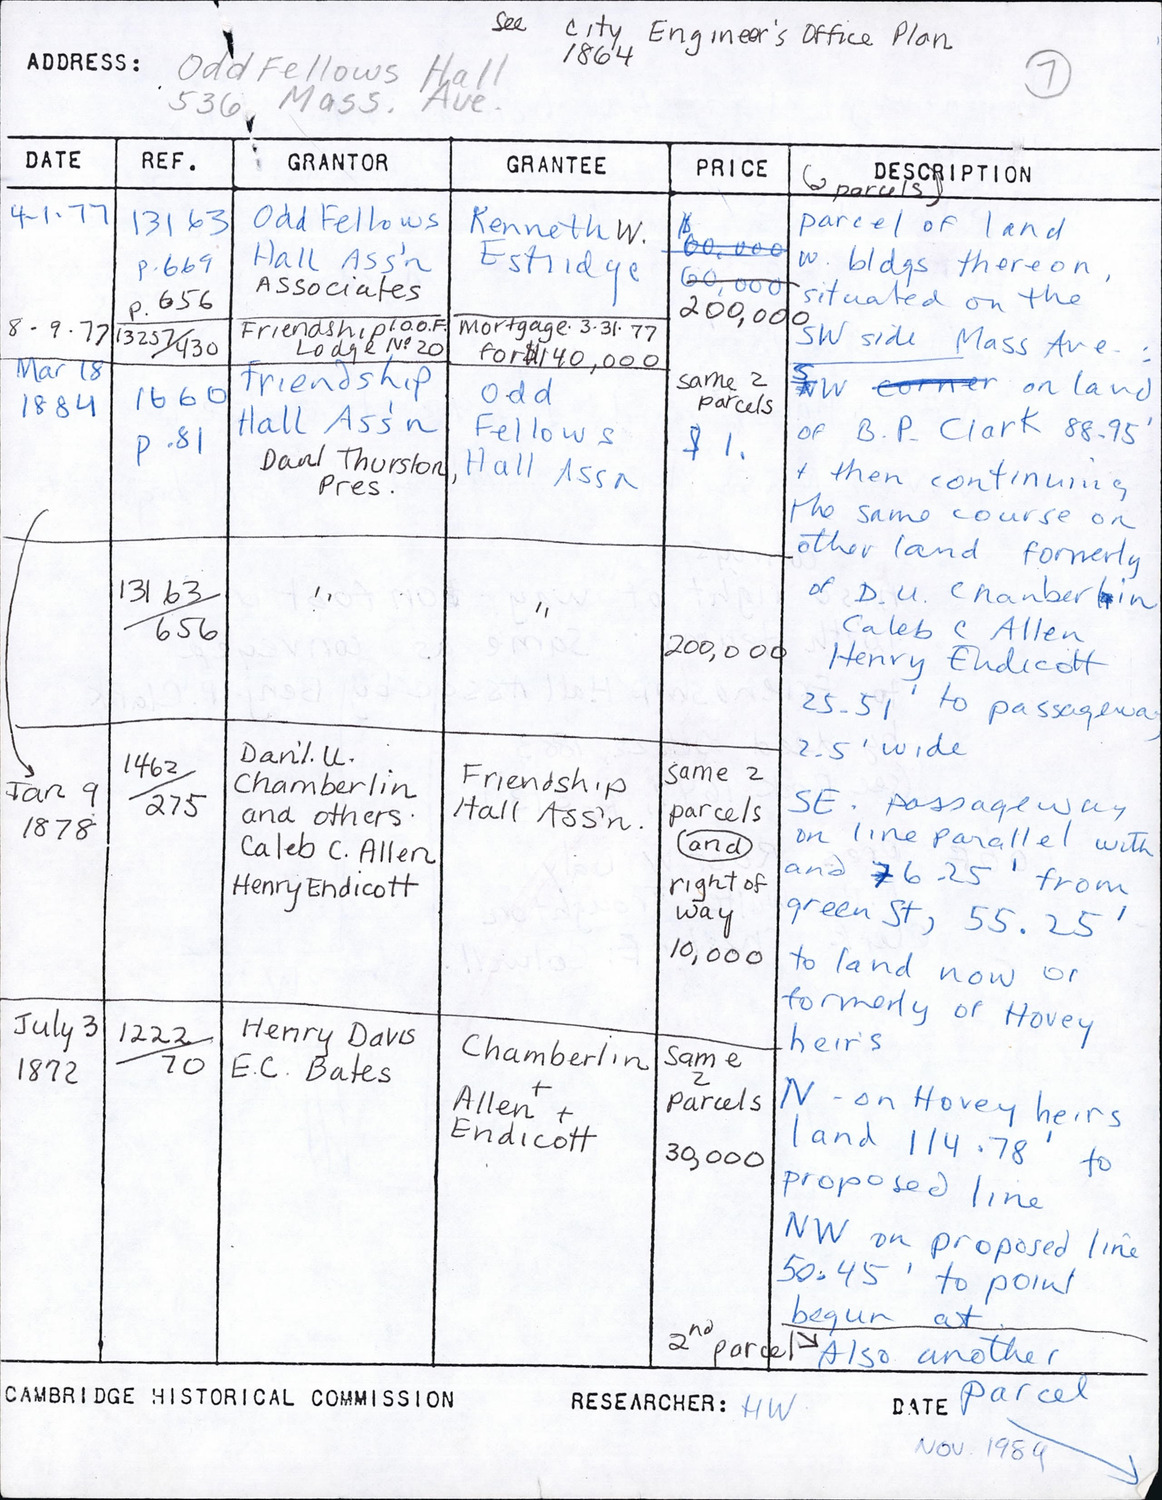 See City Engineer's Office Plan
1864
ADDRESS: Odd Fellows Hall
536 Mass. Ave.
7
DATE REF. GRANTOR GRANTEE PRICE DESCRIPTION
(2 parcels)
4-1-77
13163
p.669
p.656
Odd Fellows
Hall Ass'n
Associates
Kenneth W.
Estridge
$
60,000
60,000
200,000
8-9-77
13257/430
Friendship I.O.O.F.
Lodge No 20
Mortgage 3-31-77
for $140,000
Mar 18
1884
1660
p.81
Friendship
Hall Ass'n
Danl Thurston,
Pres.
Odd
Fellows
Hall Assn
same 2
parcels
$1.
13163/656
"
"
200,000
Jan 9
1878
1462/275
Dan'l. U.
Chamberlin
and others.
Caleb C. Allen
Henry Endicott
Friendship
Hall Ass'n.
same 2
parcels
and
right of
way
10,000
July 3
1872
1222/70
Henry Davis
E.C. Bates
Chamberlin
+
Allen +
Endicott
Same
2
Parcels
30,000
2nd parcel
parcel of land
w. bldgs thereon,
situated on the
SW side Mass Ave.:
SW corner on land
of B.P. Clark 88.95'
+ then continuing
the same course on
other land formerly
of D.U. Chanberlin
Caleb C Allen
Henry Endicott
25.51' to passageway
2.5' wide
SE. passageway
on line parallel with
and 76.25' from
green St, 55.25'
to land now or
formerly of Hovey
heirs
N - on Hovey heirs
land 114.78' to
proposed line
NW on proposed line
50.45' to point
begun at
Also another
parcel
CAMBRIDGE HISTORICAL COMMISSION RESEARCHER: HW DATE
Nov. 1989